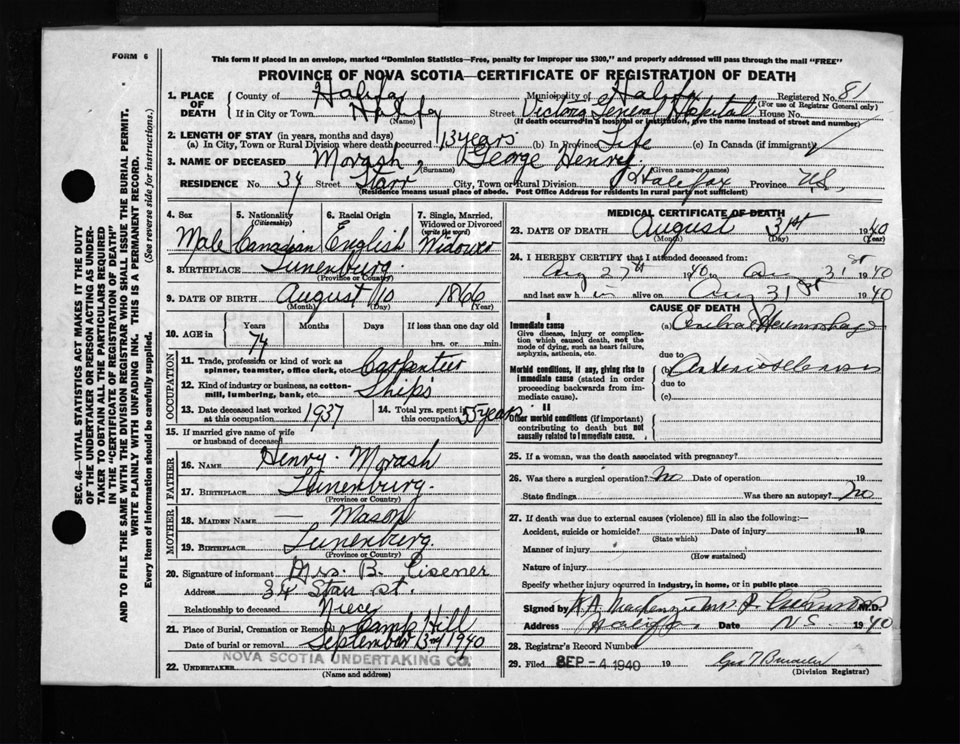 FORM 6
This form if placed in an envelope, marked "Dominion Statistics—Free, penalty for improper use $300," and properly addressed will pass through the mail "FREE"
PROVINCE OF NOVA SCOTIA—CERTIFICATE OF REGISTRATION OF DEATH
1. PLACE OF DEATH
County of Halifax Municipality of Halifax Registered No. 81
(For use of Registrar General only)
If in City or Town Halifax Street Victoria General Hospital House No.
(Name) (If death occurred in a hospital or institution, give the name instead of street and number)
2. LENGTH OF STAY (in years, months and days)
(a) In City, Town or Rural Division where death occurred 13 years (b) In Province Life (c) In Canada (if immigrant)
3. NAME OF DECEASED Morash, George Henry
(Surname) (Given name or names)
RESIDENCE No. 34 Street Starr City, Town or Rural Division Halifax Province N.S.
(Residence means usual place of abode. Post Office Address for residents in rural parts not sufficient)
4. Sex Male
5. Nationality (Citizenship) Canadian
6. Racial Origin English
7. Single, Married, Widowed or Divorced (write the word) Widower
8. BIRTHPLACE Lunenburg
(Province or Country)
9. DATE OF BIRTH August 10 1866
(Month) (Day) (Year)
10. AGE in Years Months Days If less than one day old
74 hrs. or min.
OCCUPATION
11. Trade, profession or kind of work as spinner, teamster, office clerk, etc. Carpenter
12. Kind of industry or business, as cotton-mill, lumbering, bank, etc. Ships
13. Date deceased last worked at this occupation 1937
14. Total yrs. spent in this occupation 55 years
15. If married give name of wife or husband of deceased
FATHER
16. NAME Henry Morash
17. BIRTHPLACE Lunenburg.
(Province or Country)
MOTHER
18. MAIDEN NAME Mason
19. BIRTHPLACE Lunenburg.
(Province or Country)
20. Signature of informant Mrs. B. Eisener
Address 34 Starr St.
Relationship to deceased Niece
21. Place of Burial, Cremation or Removal Camp Hill
Date of burial or removal September 3nd 1940
22. UNDERTAKER NOVA SCOTIA UNDERTAKING CO.
(Name and address)
MEDICAL CERTIFICATE OF DEATH
23. DATE OF DEATH August 31st 1940
(Month) (Day) (Year)
24. I HEREBY CERTIFY that I attended deceased from:
Aug 27th 1940 to Aug 31st 1940
and last saw him alive on Aug 31st 1940
CAUSE OF DEATH
I
Immediate cause
Give disease, injury or complication which caused death, not the mode of dying, such as heart failure, asphyxia, asthenia, etc.
(a) Cerebral Haemorrhage
due to
Morbid conditions, if any, giving rise to immediate cause (stated in order proceeding backwards from immediate cause).
(b) Arteriosclerosis
due to
(c)
II
Other morbid conditions (if important) contributing to death but not causally related to immediate cause.
25. If a woman, was the death associated with pregnancy?
26. Was there a surgical operation? No Date of operation 19
State findings Was there an autopsy? No
27. If death was due to external causes (violence) fill in also the following:—
Accident, suicide or homicide? Date 19
(State which)
Manner of injury
(How sustained)
Nature of injury
Specify whether injury occurred in industry, in home, or in public place
Signed by M.D.
Address Halifax Date N.S. 1940
28. Registrar's Record Number
29. Filed SEP - 4 1940 19
(Division Registrar)
SEC. 46—VITAL STATISTICS ACT MAKES IT THE DUTY
OF THE UNDERTAKER OR PERSON ACTING AS UNDERTAKER
TO OBTAIN ALL THE PARTICULARS REQUIRED
IN THE "CERTIFICATE OF REGISTRATION OF DEATH"
AND TO FILE THE SAME WITH THE DIVISION REGISTRAR WHO SHALL ISSUE THE BURIAL PERMIT.
WRITE PLAINLY WITH UNFADING INK. THIS IS A PERMANENT RECORD.
Every item of Information should be carefully supplied. (See reverse side for instructions.)